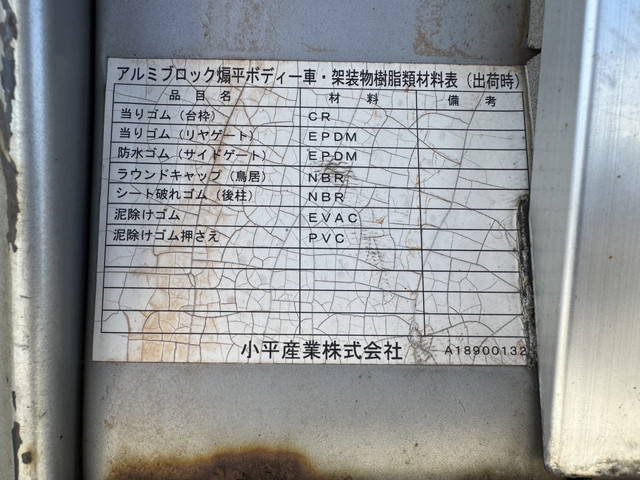 アルミブロック煽平ボディー車・架装物樹脂類材料表（出荷時）
品目名 材料 備考
当りゴム（台枠） CR
当りゴム（リヤゲート） EPDM
防水ゴム（サイドゲート） EPDM
ラウンドキャップ（鳥居） NBR
シート破れゴム（後柱） NBR
泥除けゴム EVAC
泥除けゴム押さえ PVC
小平産業株式会社 A18900132